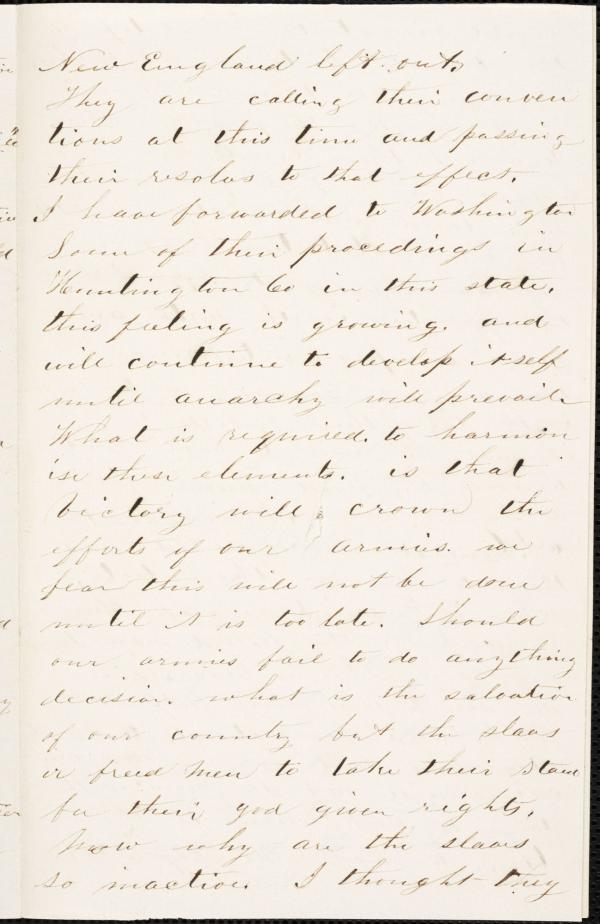 New England left out.
They are calling their conven
tions at this time and passing
their resolves to that effect.
I have forwarded to Washington
Some of their procedings in
Huntington Co in this state.
this feeling is growing. and
will continue to develop itself
until anarchy will prevail
What is required. to harmon
ise these elements. is that
Victory will crown the
efforts of our armies. we
fear this will not be done
until it is too late. Should
our armies fail to do anything
decision. what is the salvation
of our country but the slaves
or freed men to take their stand
for their god given rights.
Now why are the slaves
so inactive. I thought they